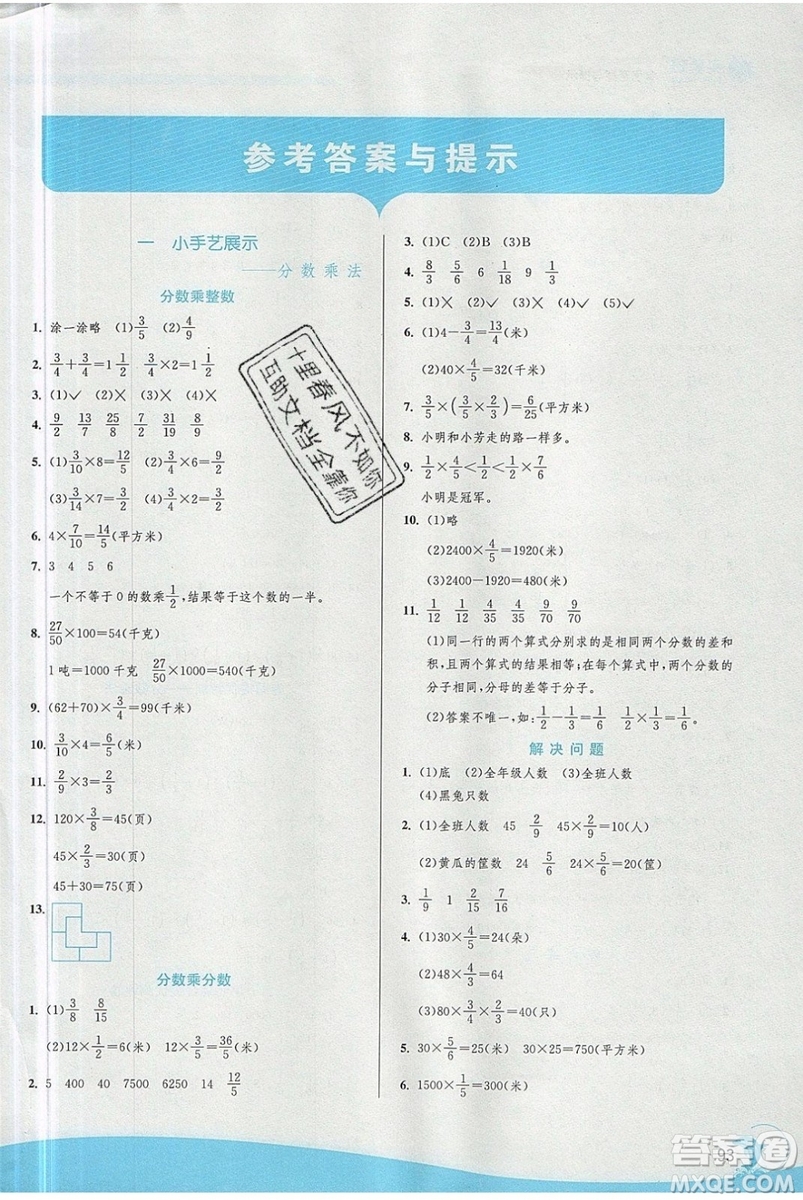 参考答案与提示
一 小手艺展示
——分数乘法
分数乘整数
1. 涂一涂略 (1)3/5 (2)4/9
2. 3/4+3/4=1 1/2 3/4×2=1 1/2
3. (1)✓ (2)✗ (3)✗ (4)✗
4. 9/2 13/7 25/8 7/2 31/8 19/8
5. (1)3/10×8=12/5 (2)3/4×2=3/2
(3)3/14×7=3/2 (4)3/8×4=3/2
6. 4×7/10=14/5(平方米)
7. 3 4 5 6
一个不等于0的数乘1/2,结果等于这个数的一半。
8. 27/50×100=54(千克)
1吨=1000千克 27/50×1000=540(千克)
9. (62+70)×3/4=99(千米)
10. 3/10×4=6/5(米)
11. 2/9×3=2/3
12. 120×3/8=45(页)
45×2/3=30(页)
45+30=75(页)
13.
分数乘分数
1. (1)3/8 8/15
(2)12×1/2=6(米) 12×3/5=36/5(米)
2. 5 400 40 7500 6250 14 12/5
3. (1)C (2)B (3)B
4. 8/3 5/6 6 1/18 9 1/3
5. (1)✗ (2)✗ (3)✓ (4)✗ (5)✓
6. (1)4-3/4=13/4(米)
(2)40×4/5=32(千米)
7. 3/5×(3/5×2/3)=6/25(平方米)
8. 小明和小芳走的路一样多。
9. 1/2×4/5<1/2<1/2×7/6
小明是冠军。
10. (1)略
(2)2400×4/5=1920(米)
(3)2400-1920=480(米)
11. 1/12 1/12 4/35 4/35 9/70 9/70
(1)同一行的两个算式分别求的是相同两个分数的差和
积,且两个算式的结果相等;在每个算式中,两个分数的
分子相同,分母的差等于分子。
(2)答案不唯一,如:1/2-1/3=1/6 1/2×1/3=1/6
解决问题
1. (1)底 (2)全年级人数 (3)全班人数
(4)黑兔只数
2. (1)全班人数 45 2/9 45×2/9=10(人)
(2)黄瓜的筐数 24 5/6 24×5/6=20(筐)
3. 1/9 1 2/9 7/16
4. (1)30×4/5=24(朵)
(2)48×4/3=64
(3)80×3/4×2/3=40(只)
5. 30×5/6=25(米) 30×25=750(平方米)
6. 1500×1/5=300(米)
十里春风不如你
互助文档全靠你
93
答案圈
MXQE.COM